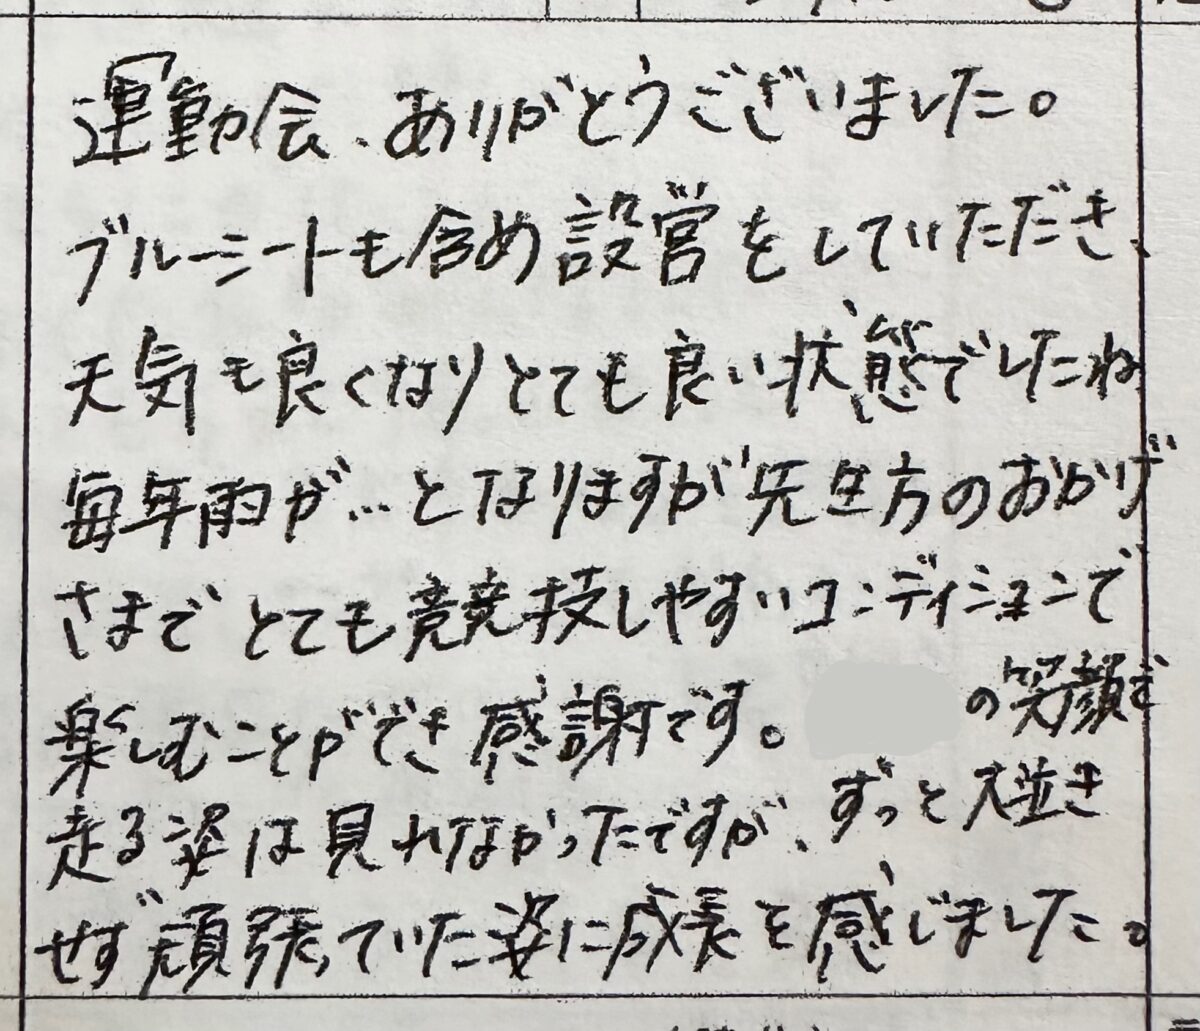 運動会、ありがとうございました。
ブルーシートも含め設営をしていただき、
天気も良くなりとても良い状態でしたね
毎年雨が…となりますが先生方のおかげ
さまでとても競技しやすいコンディションで
楽しむことができ感謝です。 の笑顔で
走る姿は見れなかったですが、ずっと大泣き
せず頑張っていた姿に成長を感じました。